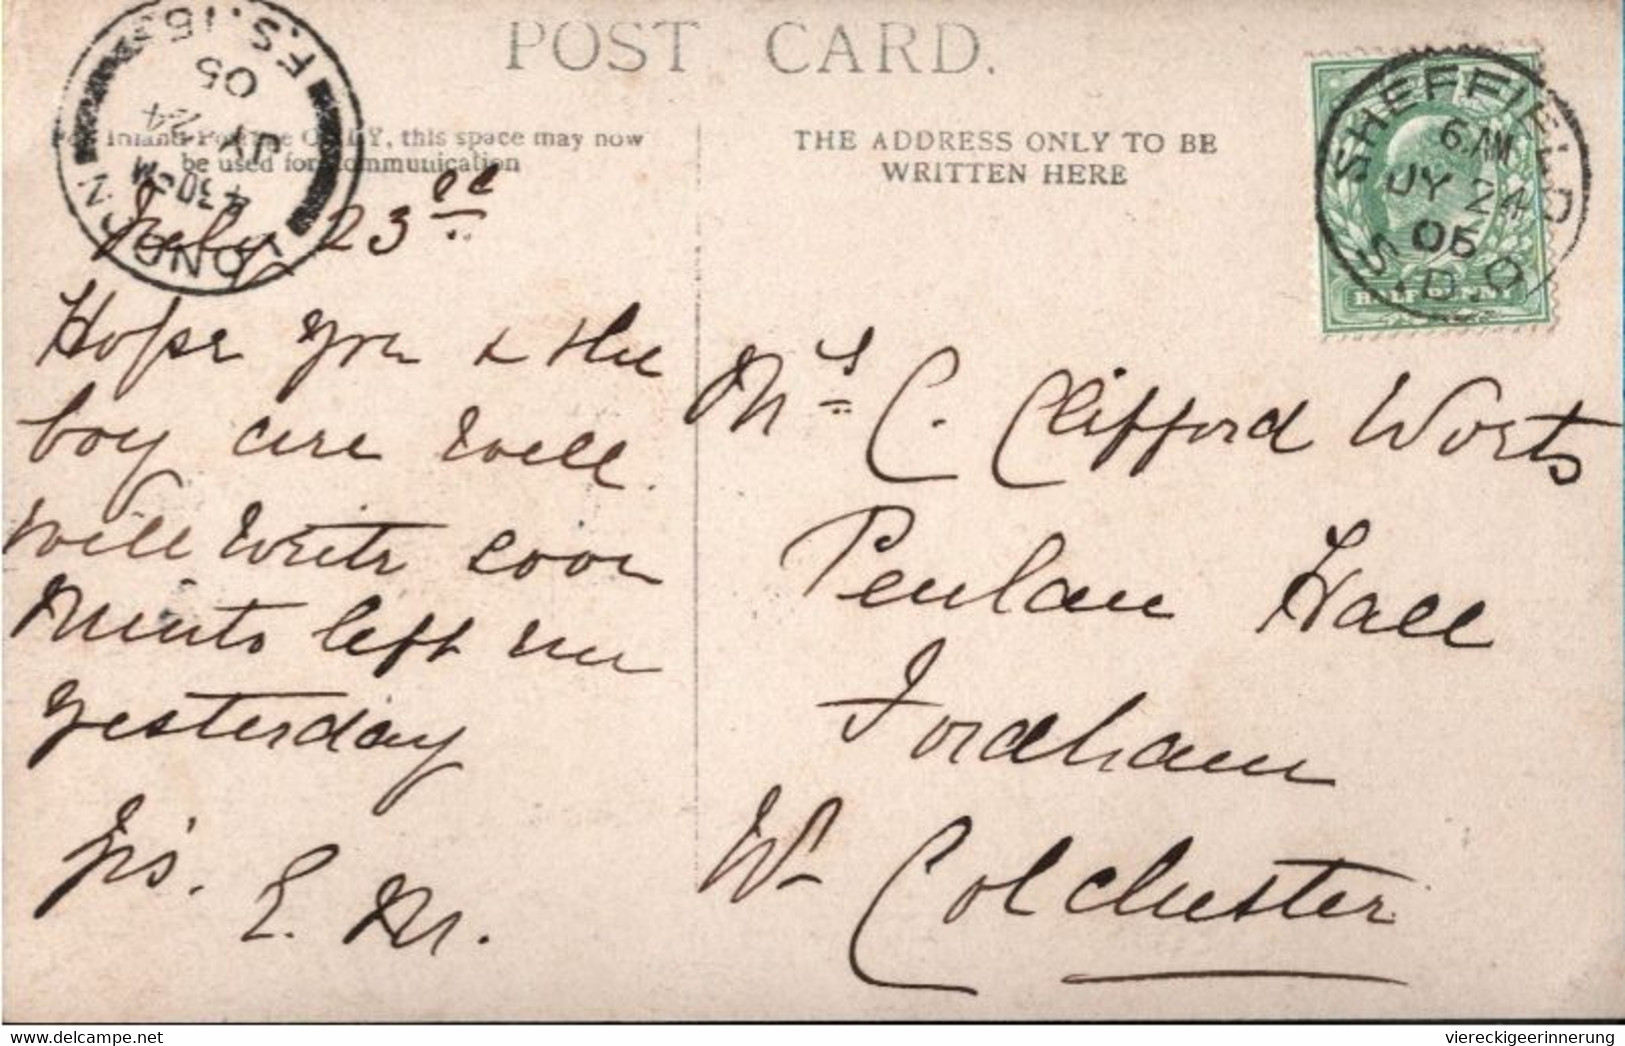 POST CARD.
Inland Postage ONLY, this space may now
be used for communication
THE ADDRESS ONLY TO BE
WRITTEN HERE
LONDON F.S. 15
4.30 PM
JY 24
05
SHEFFIELD
6 AM
JY 24
05
S.D.O
HALFPENNY
July 23rd
Hope you & the
boy are well.
Will write soon
left me
yesterday
Yrs.
E. M.
Mrs C. Clifford Worts
Penlan Hall
Fordham
Wr Colchester
Ansichtskarte.net
viereckigeerinnerung